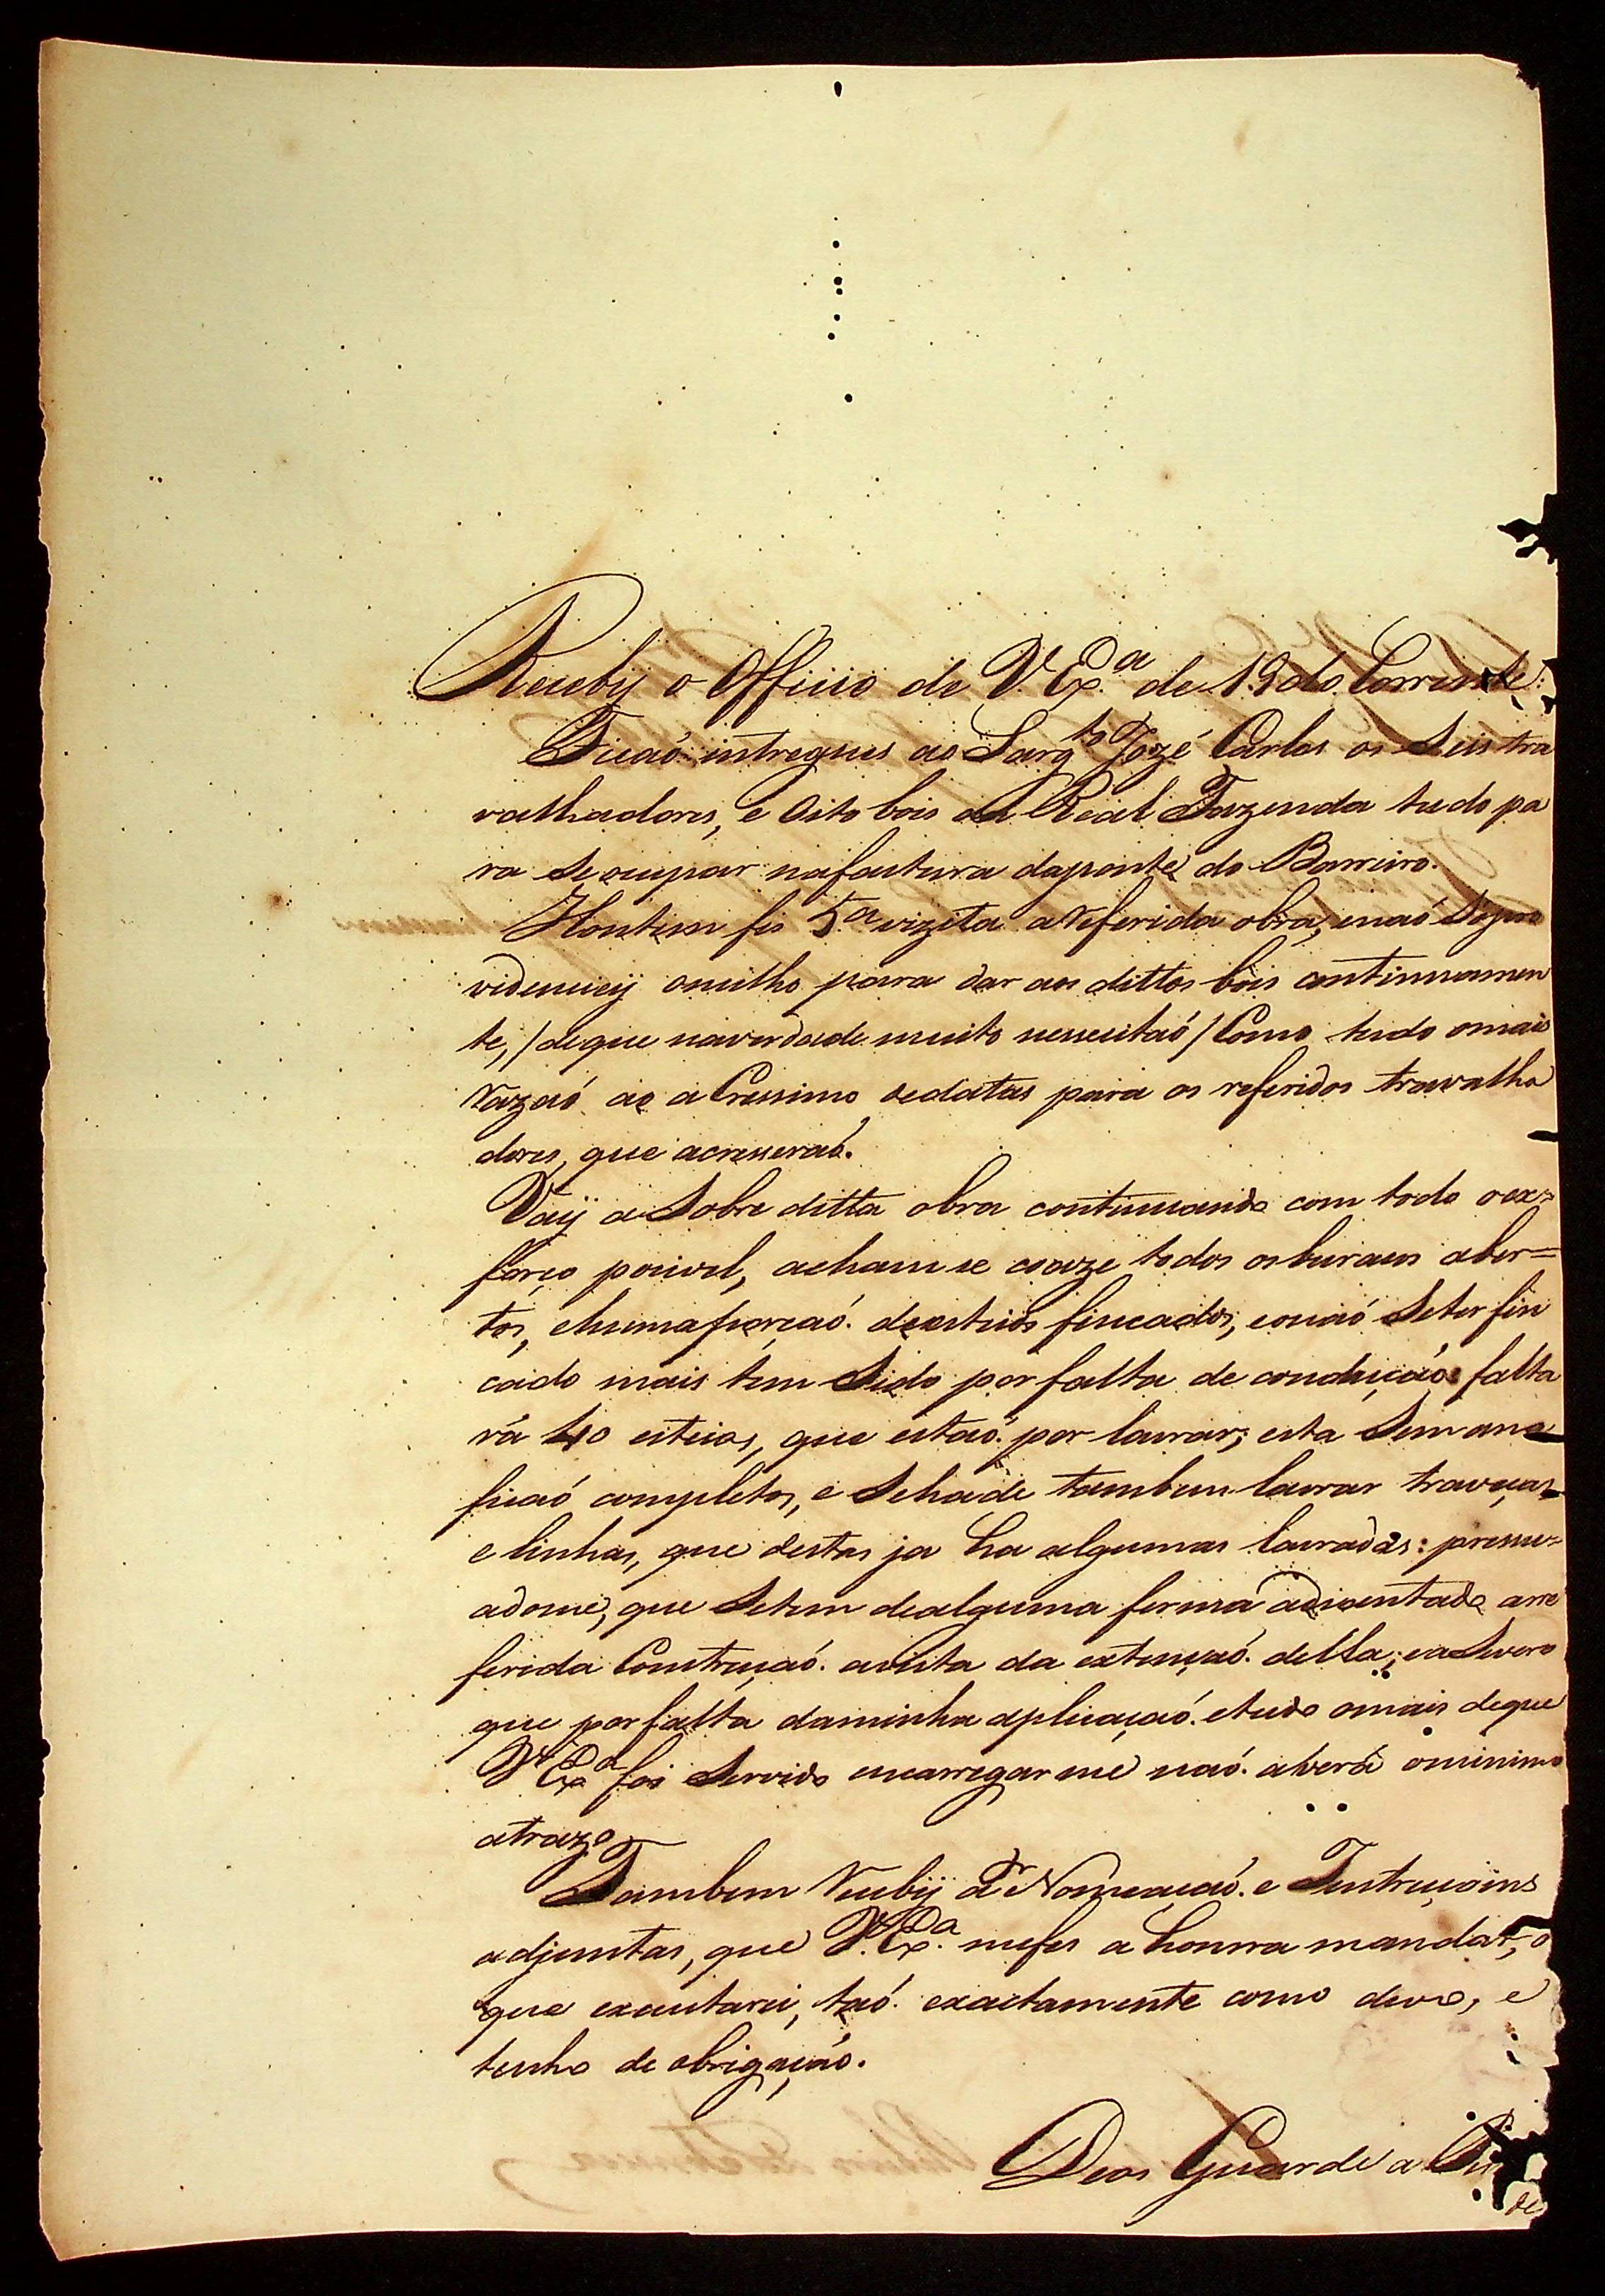 Recebij o Officio de V. Ex.ª de 19 do Corrente:
Ficaó intregues ao Sarg.to Jozé Carlos os Seis tra
valhadores, e Oito bois da Real Fazenda tudo pa
ra Se ocupar nafactura daponte do Barreiro.
Hontem fis 5.ª vizita a referida obra, enaó Sópro
videnciej omilho para dar aos dittos bois continuamen
te, / deque naverdade muito nessecitaó / Como tudo omais
razaó ao a Cressimo dedatas para os referidos travalha
dores, que acresseraó.
Vaij a Sobre ditta obra continuando com todo oex=
forço pocivel, achamse coaze todos osburacos aber=
tos, ehumaporçaó. deesteios fincados, eonaó Seter fin
cado mais tem Sido por falta de conduçaó: falta
rá 40 esteios, que estaó. por lavrar; esta Semana
ficaó completos, e Sehade tambem lavrar traveças
e linhas, que destas ja ha algumas lavradas:
adome, que Setem dealguma forma adientado arre
ferida Construçaó. avista da extençaó. della;
que por falta daminha aplicaçaó. etudo omais deque
V. Ex.ª foi Servido encarregarme naó. averá ominimo
atrazo.
Tambem Recebij a Nomeaçaó. e Instruçoins
adjuntas, que V. Ex.ª mefes a honrra mandar, o
que executarei, taó. exactamente como devo, e
tenho de obrigaçáo.
Deos Guarde a